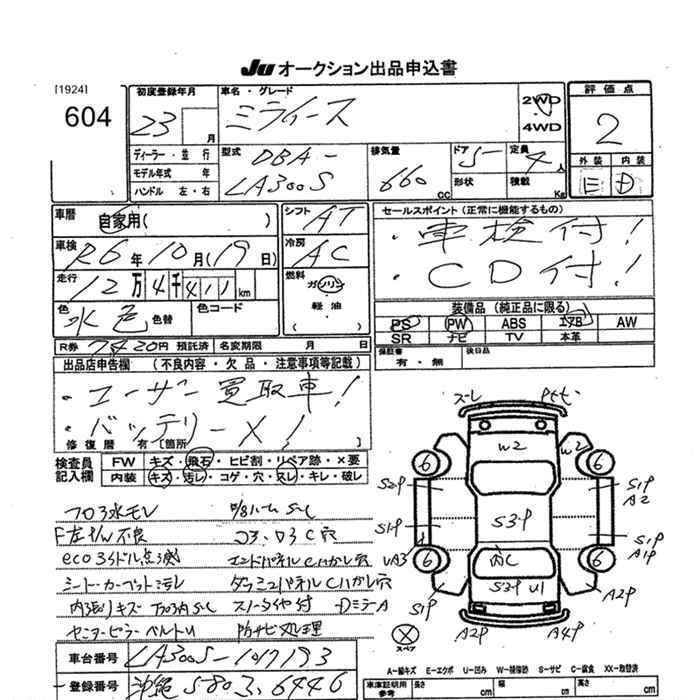 JU オークション出品申込書
[1924]
604
初度登録年月 23 月
車名・グレード ミライース
2WD
4WD
評価点
2
外装 内装
E D
ディーラー・並行
モデル年式 年
ハンドル 左・右
型式 DBA-
LA300S
排気量 660 cc
ドア 5
形状
定員 4 人
積載 Kg
車歴 自家用( )
車検 R6年10月(19日)
走行 12万4千411km
色 水色 色替
色コード
シフト AT
冷房 AC
燃料
ガソリン
軽油
( )
セールスポイント (正常に機能するもの)
・車検付!
・CD付!
装備品 (純正品に限る)
PS PW ABS エアB AW
SR ナビ TV 本革
R券 7420円 預託済 名変期限 月 日
保証書 有・無
後日品
出品店申告欄 (不良内容・欠品・注意事項等記載)
・ユーザー買取車!
・バッテリーX!
修復歴 有 [箇所 ]
検査員記入欄
FW キズ・飛石・ヒビ割・リペア跡・X要
内装 キズ・汚レ・コゲ・穴・スレ・キレ・破レ
フロア水モレ
F左
不良
ecoアイドル点滅
エンドパネルCハガレ穴
シートカーペットシミモレ
ダッシュパネルCハガレ穴
内張りキズ
スノータイヤ付
センターピラーベルトU
防サビ処理
スーレ
W2 W2
6 6
S2P S1P
A2
S1P S3P S1P
A1P
UA3 内C
6 6
S1P S3P U1 A2P
A2P A4P
X
スペア
A-線キズ E-エクボ U-凹み W-補修跡 S-サビ C-腐食 XX-取替済
車台番号 LA300S-1017193
登録番号 沖縄 580 3,6446
車庫証明用参考
長さ cm 幅 cm 高さ cm